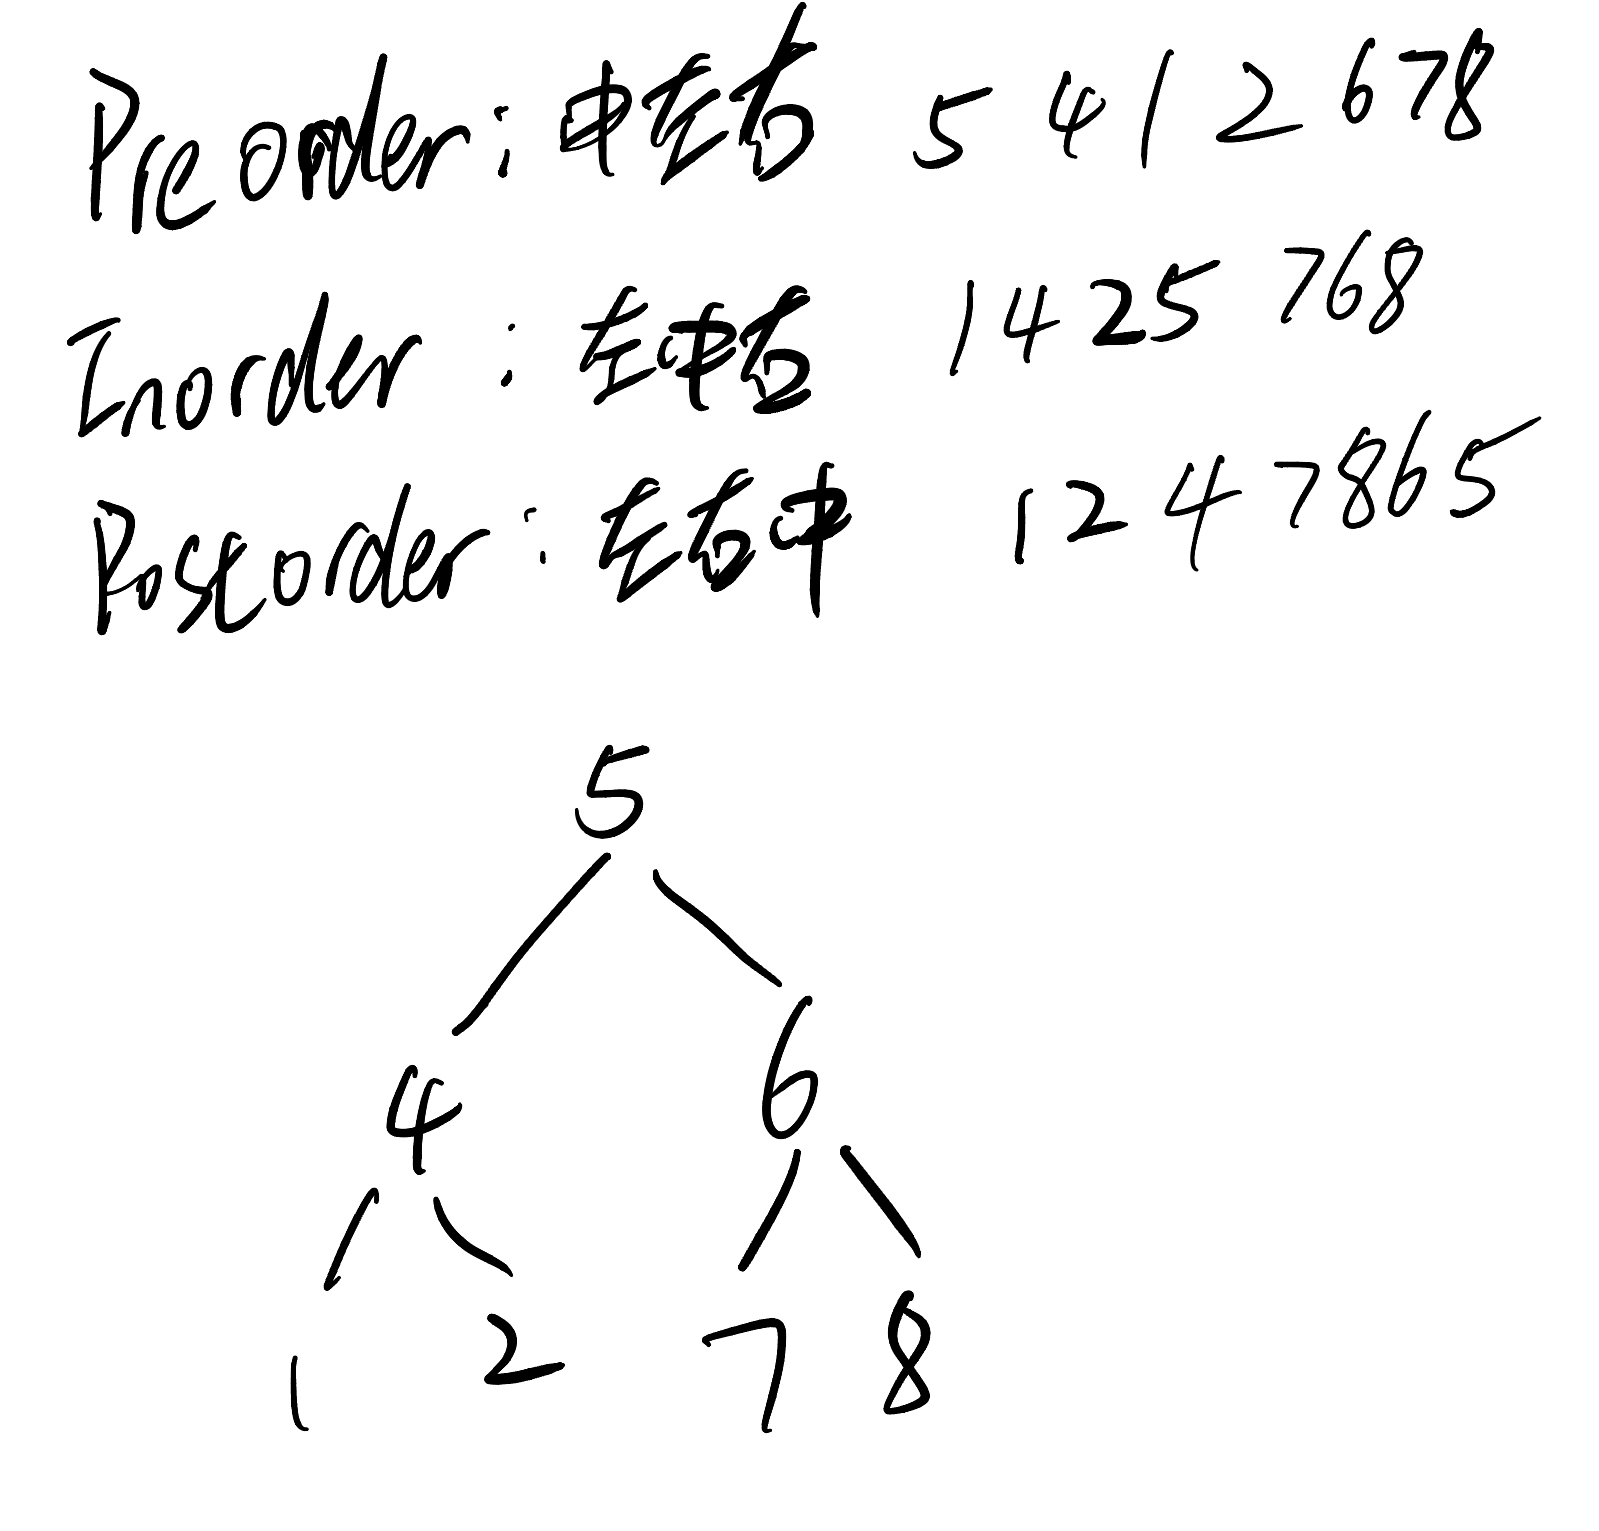 Preorder: 中左右 5 4 1 2 6 7 8
Inorder: 左中右 1 4 2 5 7 6 8
Postorder: 左右中 1 2 4 7 8 6 5
5
4 6
1 2 7 8